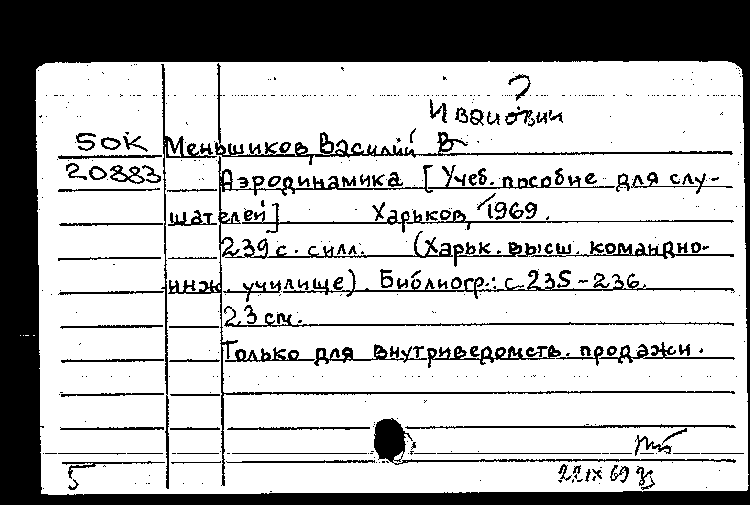 ?
Иванович
50К Меньшиков, Василий В
20883 Аэродинамика [Учеб. пособие для слу-
шателей] Харьков, 1969.
239 с. с илл. (Харьк. высш. командно-
инж. училище). Библиогр.: с. 235-236.
23 см.
Только для внутриведомств. продажи.
5 22 IX 69